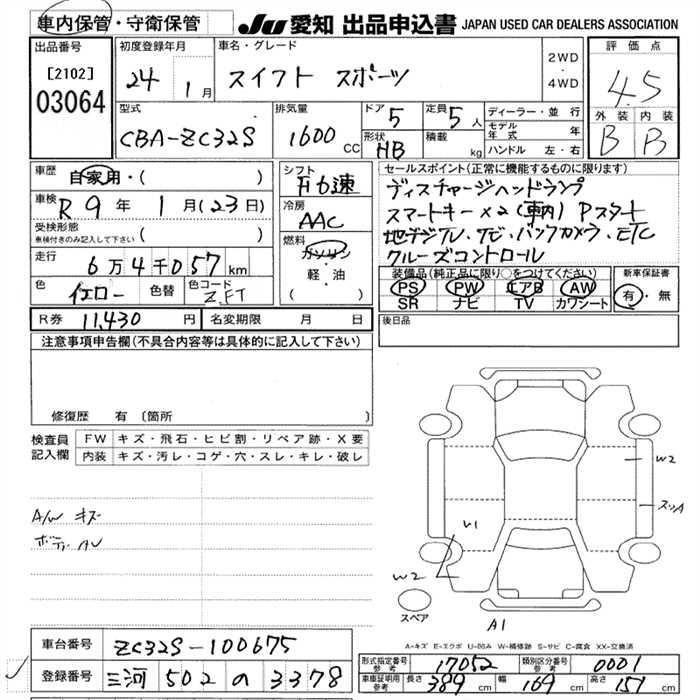 車内保管・守衛保管
JU 愛知 出品申込書 JAPAN USED CAR DEALERS ASSOCIATION
出品番号
[2102]
03064
初度登録年月
24 1月
車名・グレード
スイフト スポーツ
2WD
・
4WD
評価点
4.5
外装 内装
B B
型式
CBA-ZC32S
排気量
1600 CC
ドア 5
形状 HB
定員 5 人
積載 kg
ディーラー・並行
モデル年式 年
ハンドル 左・右
車歴
自家用・( )
車検
R 9 年 1 月(23日)
受検形態
車検付きのみ記入して下さい ( )
走行
6万4千057 km
色 イエロー 色替 色コード ZFT
シフト
F6速
冷房
AAC
燃料
ガソリン
軽・油
( )
セールスポイント(正常に機能するものに限ります)
ディスチャージヘッドランプ
スマートキー×2(車内) Pスタート
地デジTV、ナビ、バックカメラ、ETC
クルーズコントロール
装備品(純正品に限り○をつけてください)
PS PW エアB AW
SR ナビ TV カワシート
新車保証書
有・無
R券 11,430 円 名変期限 月 日
後日品
注意事項申告欄(不具合内容等は具体的に記入して下さい)
修復歴 有 [箇所 ]
検査員記入欄
FW キズ・飛石・ヒビ割・リペア跡・X要
内装 キズ・汚レ・コゲ・穴・スレ・キレ・破レ
A/W キズ
W2
スリA
U1
W2
スペア
A1
A-キズ E-エクボ U-凹み W-補修跡 S-サビ C-腐食 XX-交換済
車台番号 ZC32S-100675
登録番号 三河 502 の 3378
形式指定番号 参考 17052 類別区分番号 参考 0001
車庫証明用 参考 長さ 389 cm 幅 169 cm 高さ 151 cm